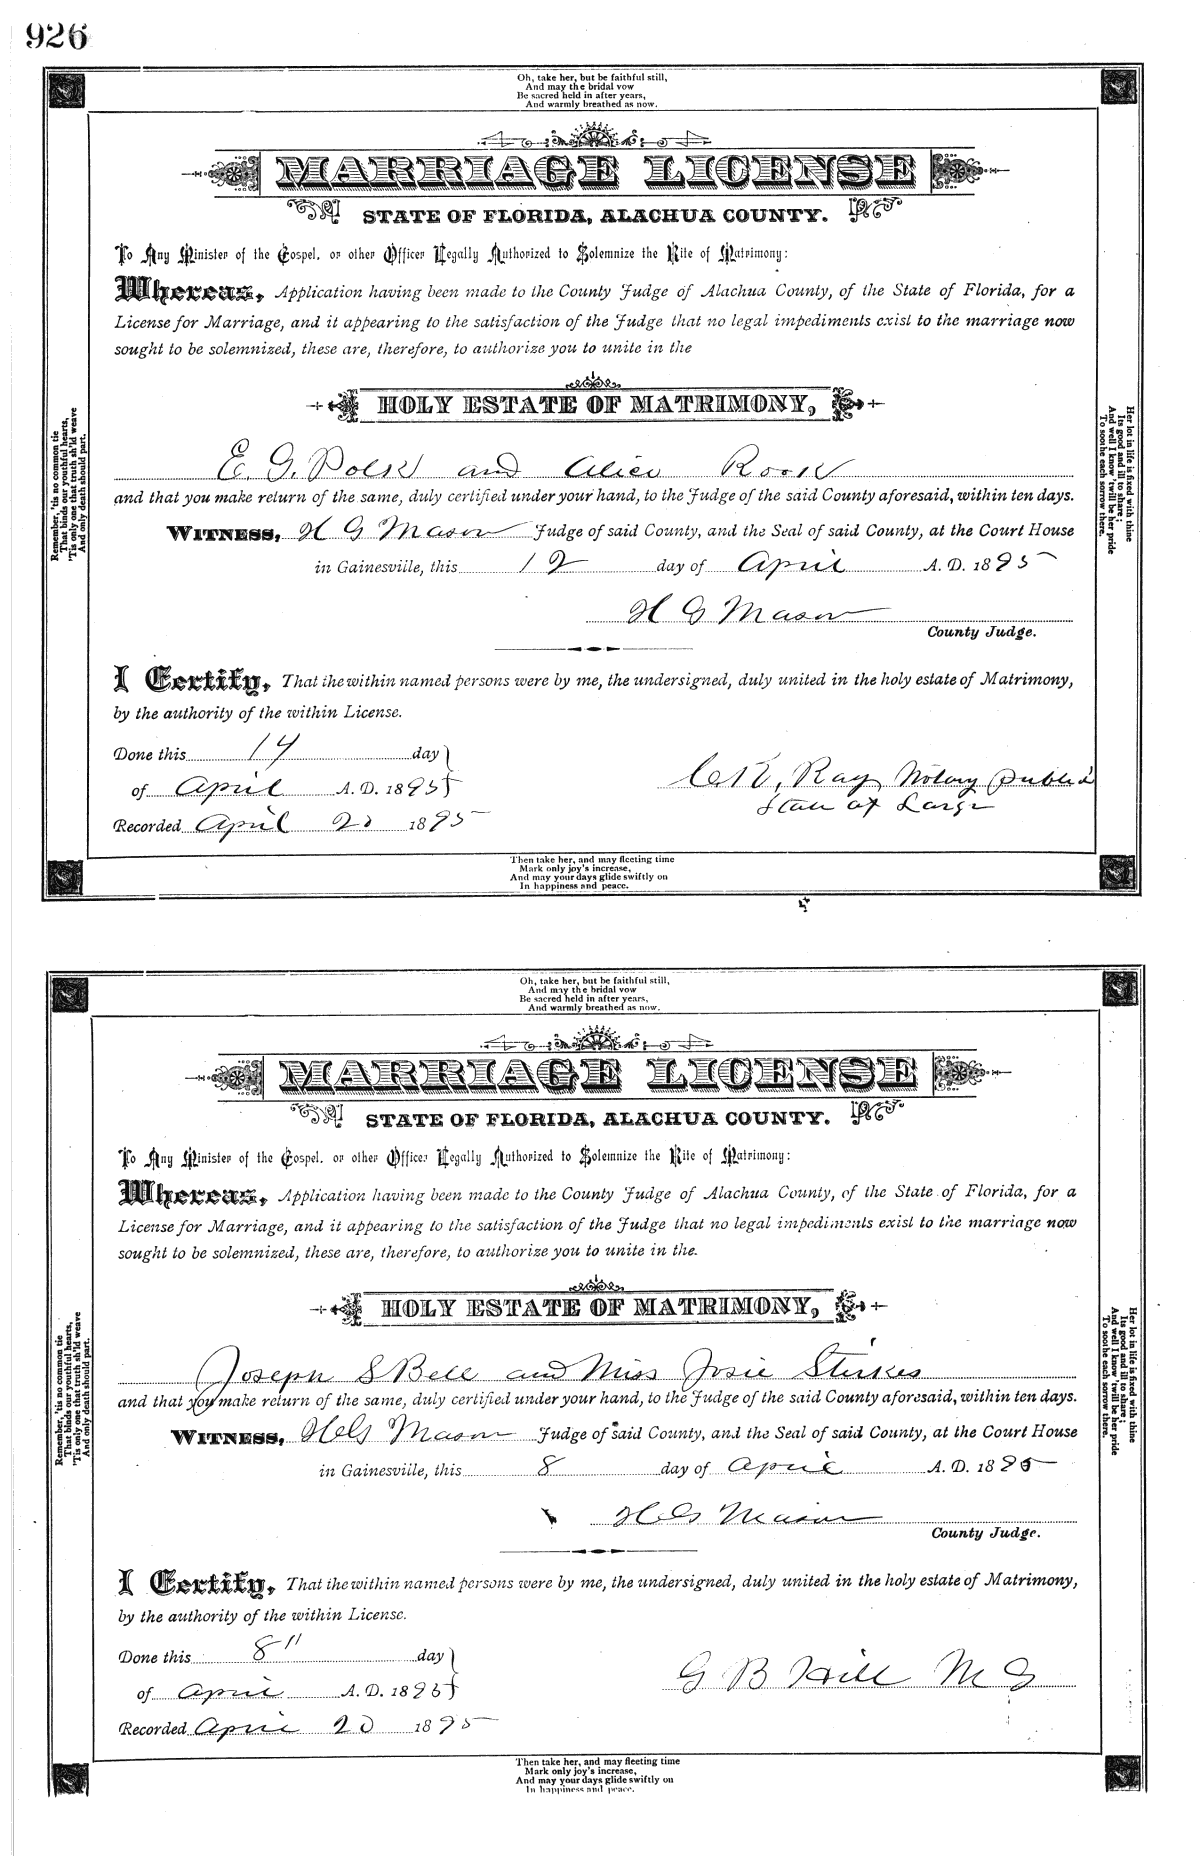 926
Oh, take her, but be faithful still,
And may the bridal vow
Be sacred held in after years,
And warmly breathed as now.
MARRIAGE LICENSE
STATE OF FLORIDA, ALACHUA COUNTY.
To Any Minister of the Gospel, or other Officer Legally Authorized to Solemnize the Rite of Matrimony:
Whereas, Application having been made to the County Judge of Alachua County, of the State of Florida, for a
License for Marriage, and it appearing to the satisfaction of the Judge that no legal impediments exist to the marriage now
sought to be solemnized, these are, therefore, to authorize you to unite in the
HOLY ESTATE OF MATRIMONY,
E. G. Polk and Alice Rook
and that you make return of the same, duly certified under your hand, to the Judge of the said County aforesaid, within ten days.
WITNESS, H G Mason Judge of said County, and the Seal of said County, at the Court House
in Gainesville, this 12 day of April A. D. 1895
H G Mason
County Judge.
I Certify, That the within named persons were by me, the undersigned, duly united in the holy estate of Matrimony,
by the authority of the within License.
Done this 14 day
of April A. D. 1895
Recorded April 20 1895
C. K. Ray Notary public
State at Large
Remember, 'tis no common tie
That binds our youthful hearts,
'Tis only one that truth sh'ld weave
And only death should part.
Her lot in life is fixed with thine
Its good and ill to share;
And well I know 'twill be her pride
To soothe each sorrow there.
Then take her, and may fleeting time
Mark only joy's increase,
And may your days glide swiftly on
In happiness and peace.
Oh, take her, but be faithful still,
And may the bridal vow
Be sacred held in after years,
And warmly breathed as now.
MARRIAGE LICENSE
STATE OF FLORIDA, ALACHUA COUNTY.
To Any Minister of the Gospel, or other Officer Legally Authorized to Solemnize the Rite of Matrimony:
Whereas, Application having been made to the County Judge of Alachua County, of the State of Florida, for a
License for Marriage, and it appearing to the satisfaction of the Judge that no legal impediments exist to the marriage now
sought to be solemnized, these are, therefore, to authorize you to unite in the.
HOLY ESTATE OF MATRIMONY,
Joseph S Bell and Miss Josie Stirkes
and that you make return of the same, duly certified under your hand, to the Judge of the said County aforesaid, within ten days.
WITNESS, H G Mason Judge of said County, and the Seal of said County, at the Court House
in Gainesville, this 8 day of April A. D. 1895
H G Mason
County Judge.
I Certify, That the within named persons were by me, the undersigned, duly united in the holy estate of Matrimony,
by the authority of the within License.
Done this 8" day
of April A. D. 1895
Recorded April 20 1895
G B Hill M G
Remember, 'tis no common tie
That binds our youthful hearts,
'Tis only one that truth sh'ld weave
And only death should part.
Her lot in life is fixed with thine
Its good and ill to share;
And well I know 'twill be her pride
To soothe each sorrow there.
Then take her, and may fleeting time
Mark only joy's increase,
And may your days glide swiftly on
In happiness and peace.